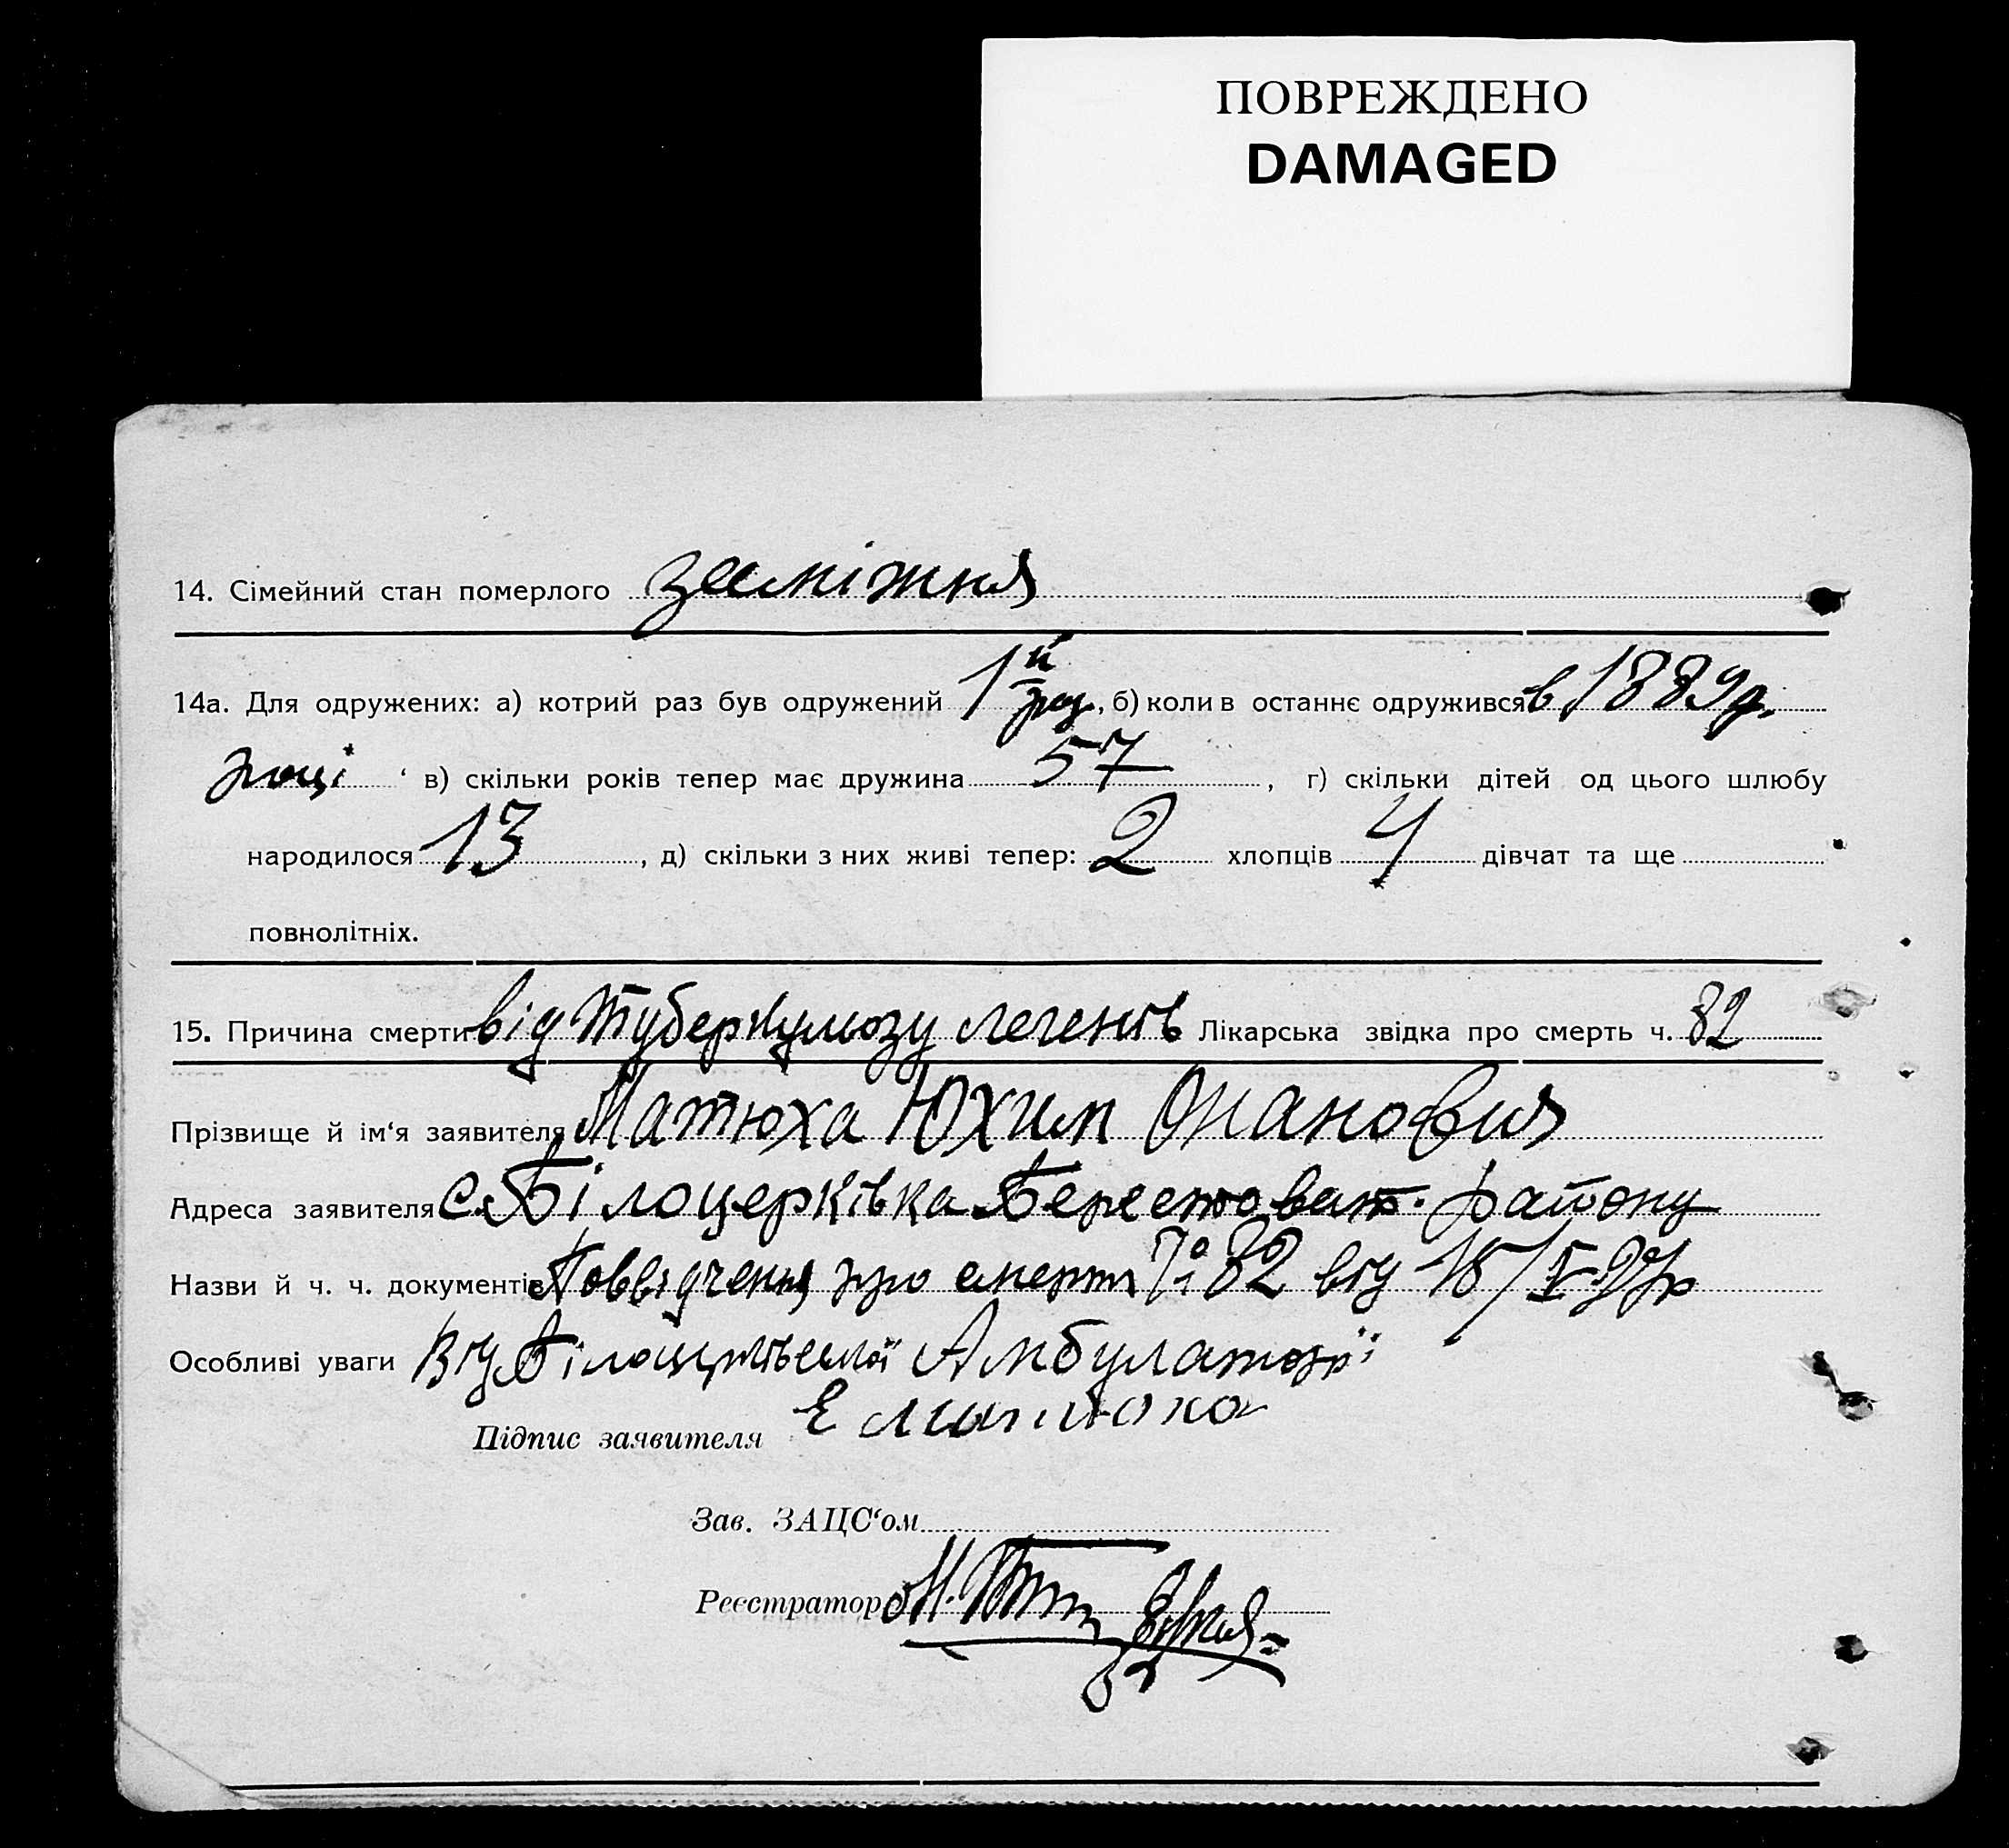 ПОВРЕЖДЕНО
DAMAGED
14. Сімейний стан померлого заміжня
14а. Для одружених: а) котрий раз був одружений 1й раз, б) коли в останнє одружився в 1889 р.
році в) скільки років тепер має дружина 57, г) скільки дітей од цього шлюбу
народилося 13, д) скільки з них живі тепер: 2 хлопців 4 дівчат та ще
повнолітніх.
15. Причина смерти від туберкульозу легенів Лікарська звідка про смерть ч. 82
Прізвище й ім‘я заявителя Матюха Юхим Опанович
Адреса заявителя с. Білоцерківка Берестоват. району
Назви й ч. ч. документів про смерть № 82 від 18/V
Особливі уваги Від Білоцерківської Амбулаторії
Підпис заявителя Е Матюха
Зав. ЗАЦС‘ом
Реєстратор